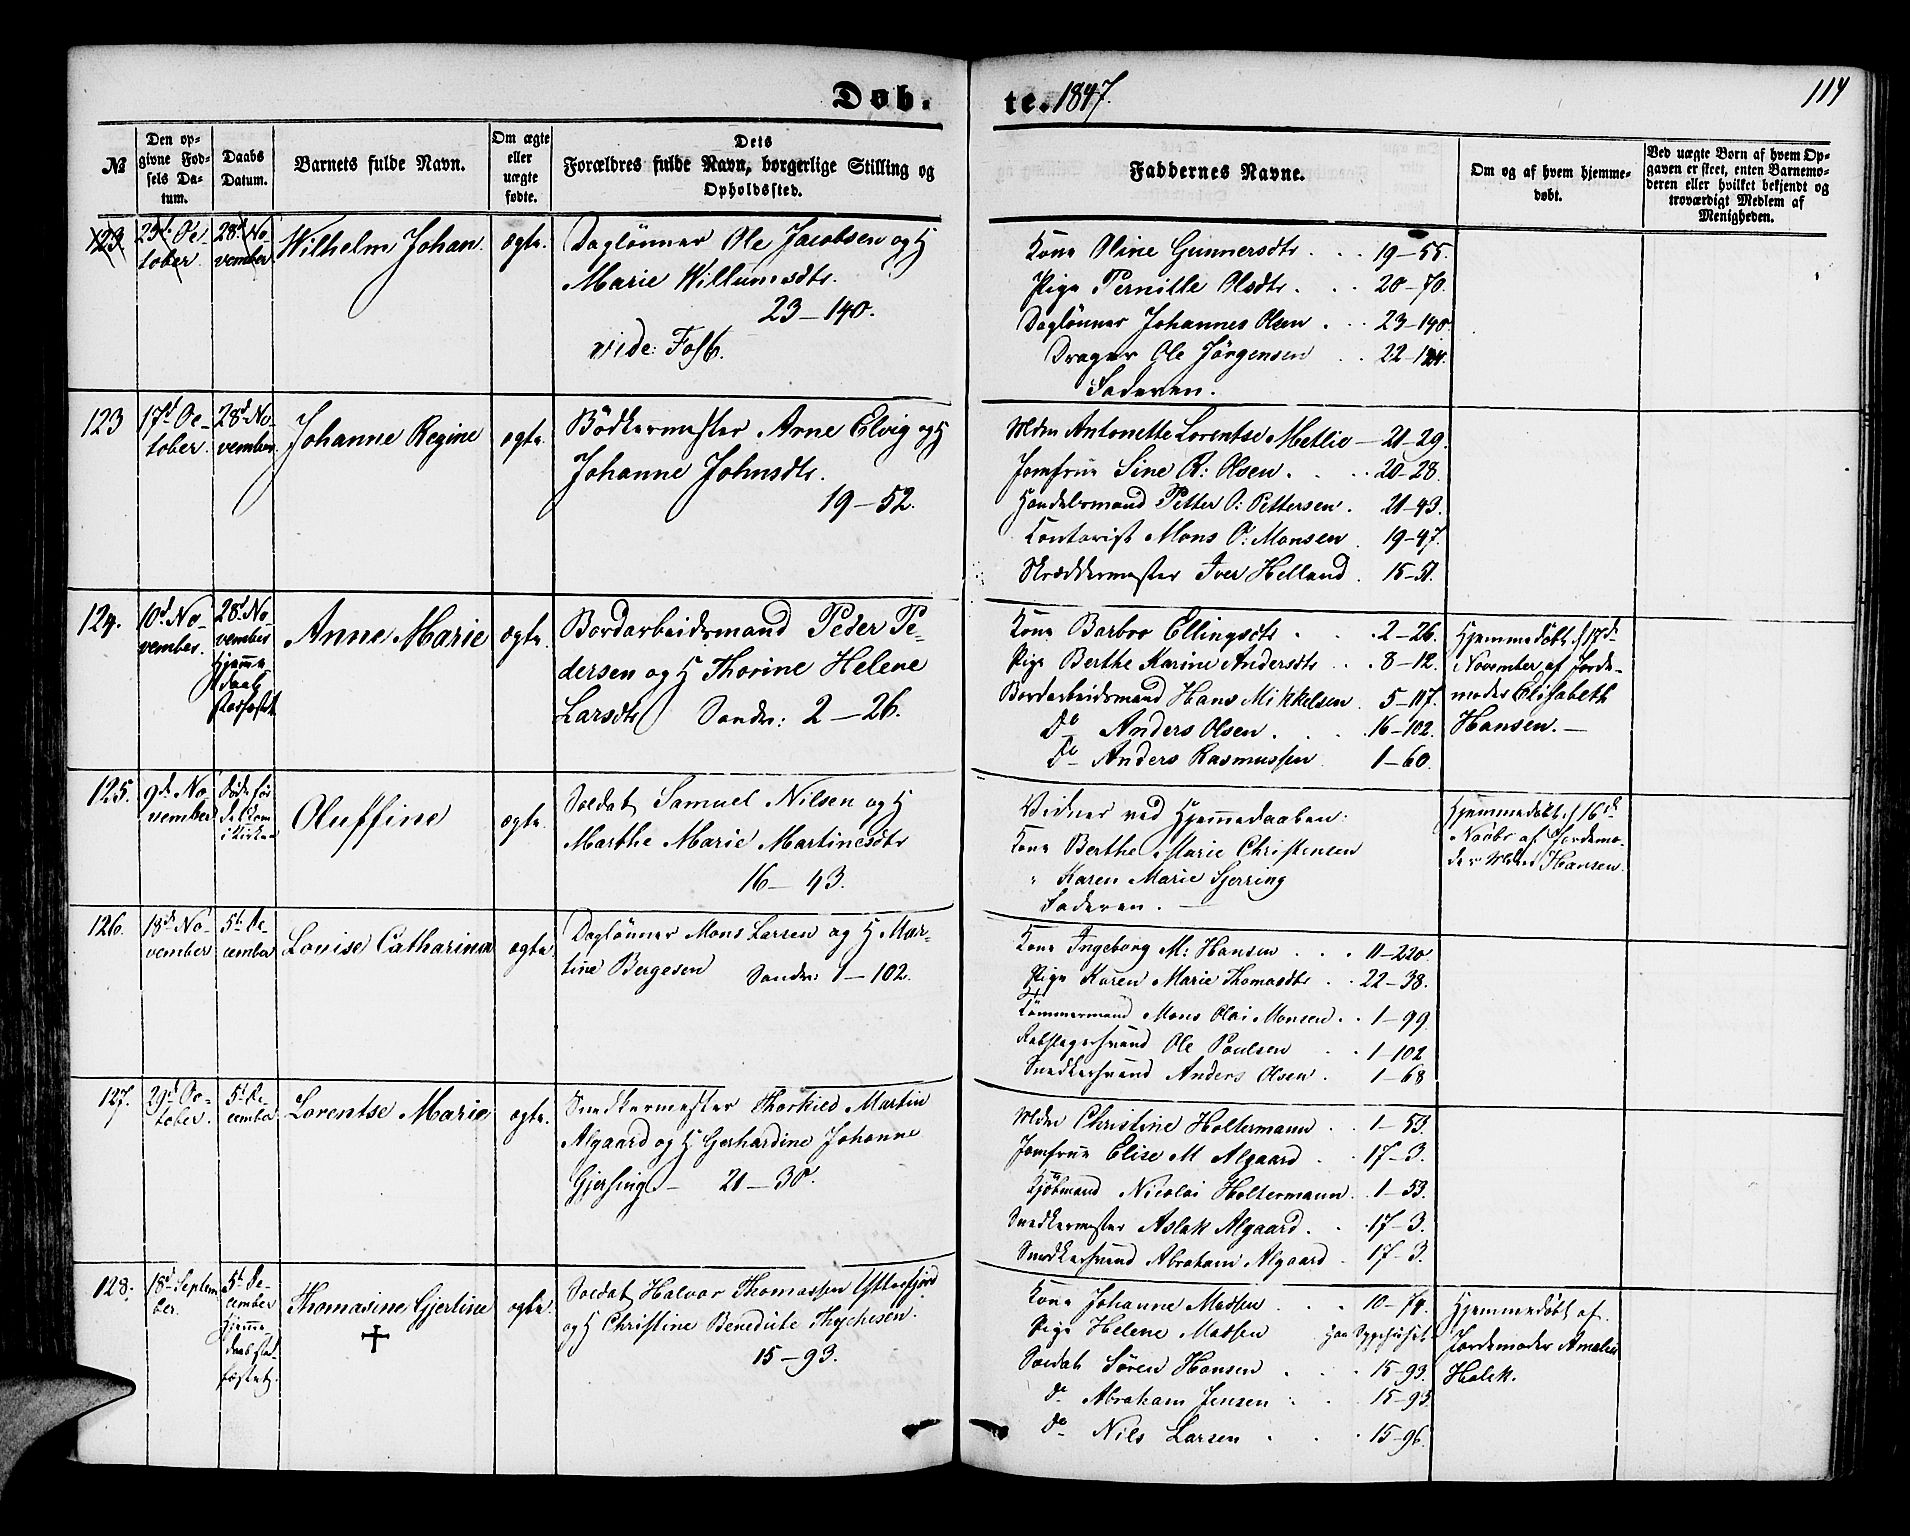 Døb.
te. 1847.
114
№
Den op-
givne Fød-
sels Da-
tum.
Daabs
Datum.
Barnets fulde Navn.
Om ægte
eller
uægte
fødte.
Dets
Forældres fulde Navn, borgerlige Stilling og
Opholdssted.
Faddernes Navne.
Om og af hvem hjemme-
døbt.
Ved uægte Børn af hvem Op-
gaven er skeet, enten Barnemo-
deren eller hvilket bekjendt og
troværdigt Medlem af
Menigheden.
123
25d Oc-
tober.
28d No-
vember
Wilhelm Johan.
ægte.
Daglønner Ole Jacobsen og H
Marie Willumsdtr.
23-140.
vide: Fol 6.
Kone Oline Gunnersdtr . . . 19-55.
Pige Pernille Olsdtr . . . 20-70.
Daglønner Johannes Olsen . . . 23-140.
Drager Ole Jörgensen . . 22-
Faderen.
123
17d Oc-
tober.
28d No-
vember.
Johanne Regine
ægte.
Bødkermester Arne Elvig og H
Johanne Johnsdtr.
19-52.
Mdm Antonette Lorentse Metlie - 21-29.
Jomfrue Sine R: Olsen . . . 20-28
Handelsmand Petter O: Pettersen . 21-43.
Kontorist Mons O: Monsen . 19-47.
Skræddermester Iver Helland . 15-51.
124.
10d No-
vember.
28d No-
vember
Hjemme
daab
Stadfæstet
Anne Marie
ægte.
Bordarbeidsmand Peder Pe-
dersen og H Thorine Helene
Larsdtr Sandv: 2-26.
Kone Barbro Ellingsdtr . . . 2-26.
Pige Berthe Karine Andersdtr . . 8-12.
Bordarbeidsmand Hans Mikkelsen . 5-117.
Do Anders Olsen . . . 16-102.
Do Anders Rasmussen . 1-60.
Hjemmedøbt d 17de
November af Jorde-
moder Elisabeth
Hansen. -
125.
9d No-
vember
døde før
det kom
i Kirken
Oluffine
ægte.
Soldat Samuel Nilsen og H
Marthe Marie Martinesdtr
16-43.
Vidner ved Hjemmedaaben.
Kone Berthe Marie Christensen
" Karen Marie Gjerring
Faderen. -
Hjemmedøbt d 16de
Novbr af Jordemo-
der Mdm Hansen.
126.
18d No-
vember
5t De-
cember
Louise Catharina
ægte.
Daglønner Mons Larsen og H Mar-
tine Bergesen Sandv: 1-102.
Kone Ingeborg M: Hansen . . . 11-220.
Pige Karen Marie Thomasdtr . . 22-38.
Tömmermand Mons Olai Monsen . . 1-99
Rebslagersvend Ole Paulsen . . 1-102
Snedkersvend Anders Olsen . 1-68
127.
29d Oc-
tober.
5t De-
cember
Lorentse Marie
ægte.
Snedkermester Thorkild Martin
Algaard og H Gerhardine Johanne
Gjersing - 21-30.
Mdm Christine Holtermann . . 1-53.
Jomfrue Elise M Algaard . . 17-3.
Kjöbmand Nicolai Holtermann . 1-53.
Snedkermester Aslak Algaard . . 17-3.
Snedkersvend Abraham Algaard . 17-3.
128.
18d Septem-
ber.
5t De-
cember
Hjemme
daab stad-
fæstet.
Thomasine Gjertine
✝
ægte.
Soldat Halvor Thomassen Yttrefjord
og H Christine Benedicte Thychesen.
15-93.
Kone Johanne Madsen . . . 10-74.
Pige Helene Madsen paa Sygehuset
Soldat Søren Hansen . . . 15-93.
do Abraham Jensen . . 15-95
do Nils Larsen . . 15-96.
Hjemmedøbt af
Jordemoder Amalie
Holck.